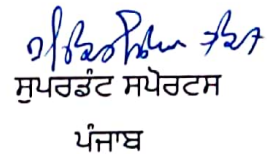 ਸੁਪਰਡੰਟ ਸਪੋਰਟਸ
ਪੰਜਾਬ